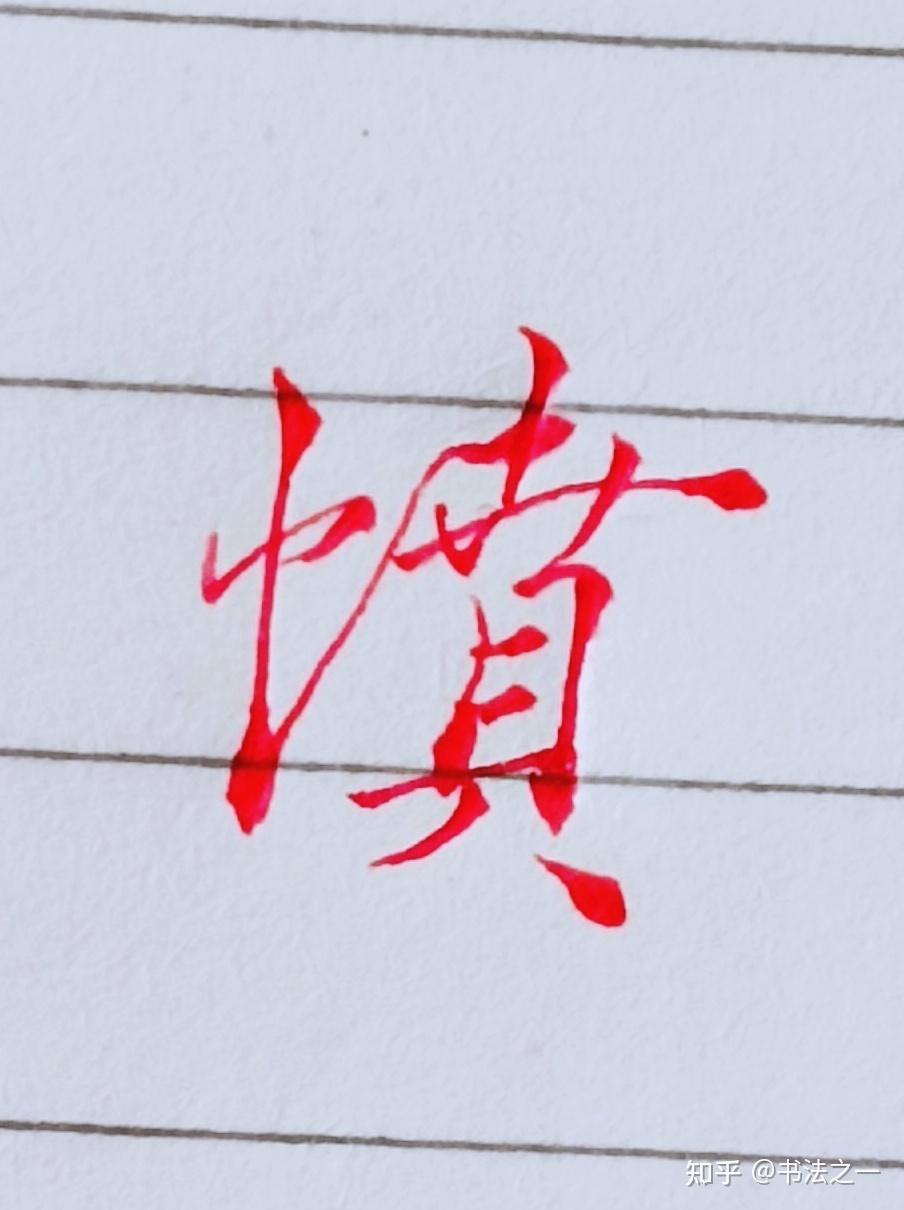 憤
知乎 @书法之一